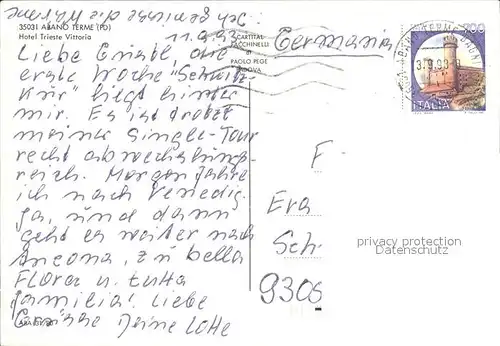 Ich genieße die Wärme
35031 ABANO TERME (PD)
Hotel Trieste Vittoria
11.9.93
CARTITAL
di
PAOLO PEGE
PADOVA
Germania
ITALIA
Liebe Christl, die
erste Woche "Schwitz-
Kur" liegt hinter
mir. Es ist trotz
meiner Single-Tour
recht abwechslungs-
reich. Morgen fahre
ich nach Venedig.
Ja, und dann
geht es weiter nach
Ancona, zu bella
Flora u. tutta
familia! Liebe
Grüsse Deine Lotte
F
Eva
Sch
9306
privacy protection
Datenschutz